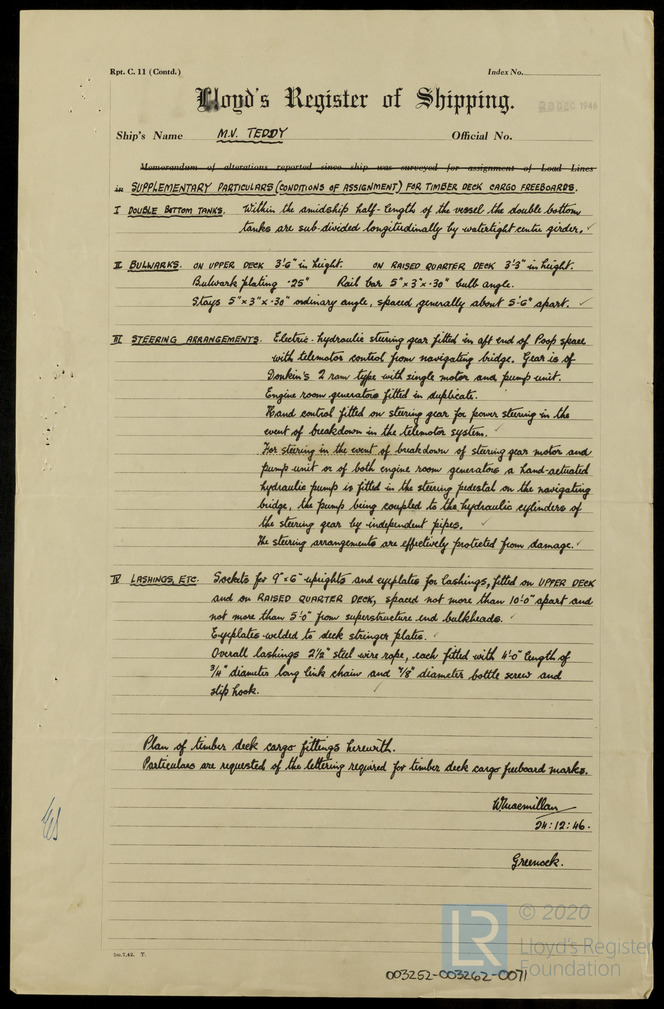 Rpt. C. 11 (Contd.)
Index No.
Lloyd's Register of Shipping.
DEC 1946
Ship's Name M.V. TEDDY Official No.
Memorandum of alterations reported since ship was surveyed for assignment of Load Lines
in SUPPLEMENTARY PARTICULARS (CONDITIONS OF ASSIGNMENT) FOR TIMBER DECK CARGO FREEBOARDS.
I DOUBLE BOTTOM TANKS. Within the amidship half-length of the vessel the double bottom
tanks are sub-divided longitudinally by watertight centre girder. ✓
II BULWARKS. ON UPPER DECK 3'-6" in height. ON RAISED QUARTER DECK 3'-3" in height.
Bulwark plating ·25" Rail bar 5" x 3" x ·30" bulb angle.
Stays 5" x 3" x ·30" ordinary angle, spaced generally about 5'-6" apart. ✓
III STEERING ARRANGEMENTS. Electric-hydraulic steering gear fitted in aft end of Poop space
with telemotor control from navigating bridge. Gear is of
Donkin's 2 ram type with single motor and pump unit.
Engine room generators fitted in duplicate.
Hand control fitted on steering gear for power steering in the
event of breakdown in the telemotor system. ✓
For steering in the event of breakdown of steering gear motor and
pump unit or of both engine room generators a hand-actuated
hydraulic pump is fitted in the steering pedestal on the navigating
bridge, the pump being coupled to the hydraulic cylinders of
the steering gear by independent pipes. ✓
The steering arrangements are effectively protected from damage. ✓
IV LASHINGS, ETC. Sockets for 9" x 6" uprights and eyeplates for lashings, fitted on UPPER DECK
and on RAISED QUARTER DECK, spaced not more than 10'-0" apart and
not more than 5'-0" from superstructure end bulkheads. ✓
Eyeplates welded to deck stringer plates. ✓
Overall lashings 2½" steel wire rope, each fitted with 4'-0" length of
¾" diameter long link chain and ⅞" diameter bottle screw and
slip hook. ✓
Plan of timber deck cargo fittings herewith.
Particulars are requested of the lettering required for timber deck cargo freeboard marks.
W Macmillan
24:12:46.
Greenock.
© 2020
LR Lloyd's Register
Foundation
T.
003252-003262-0071